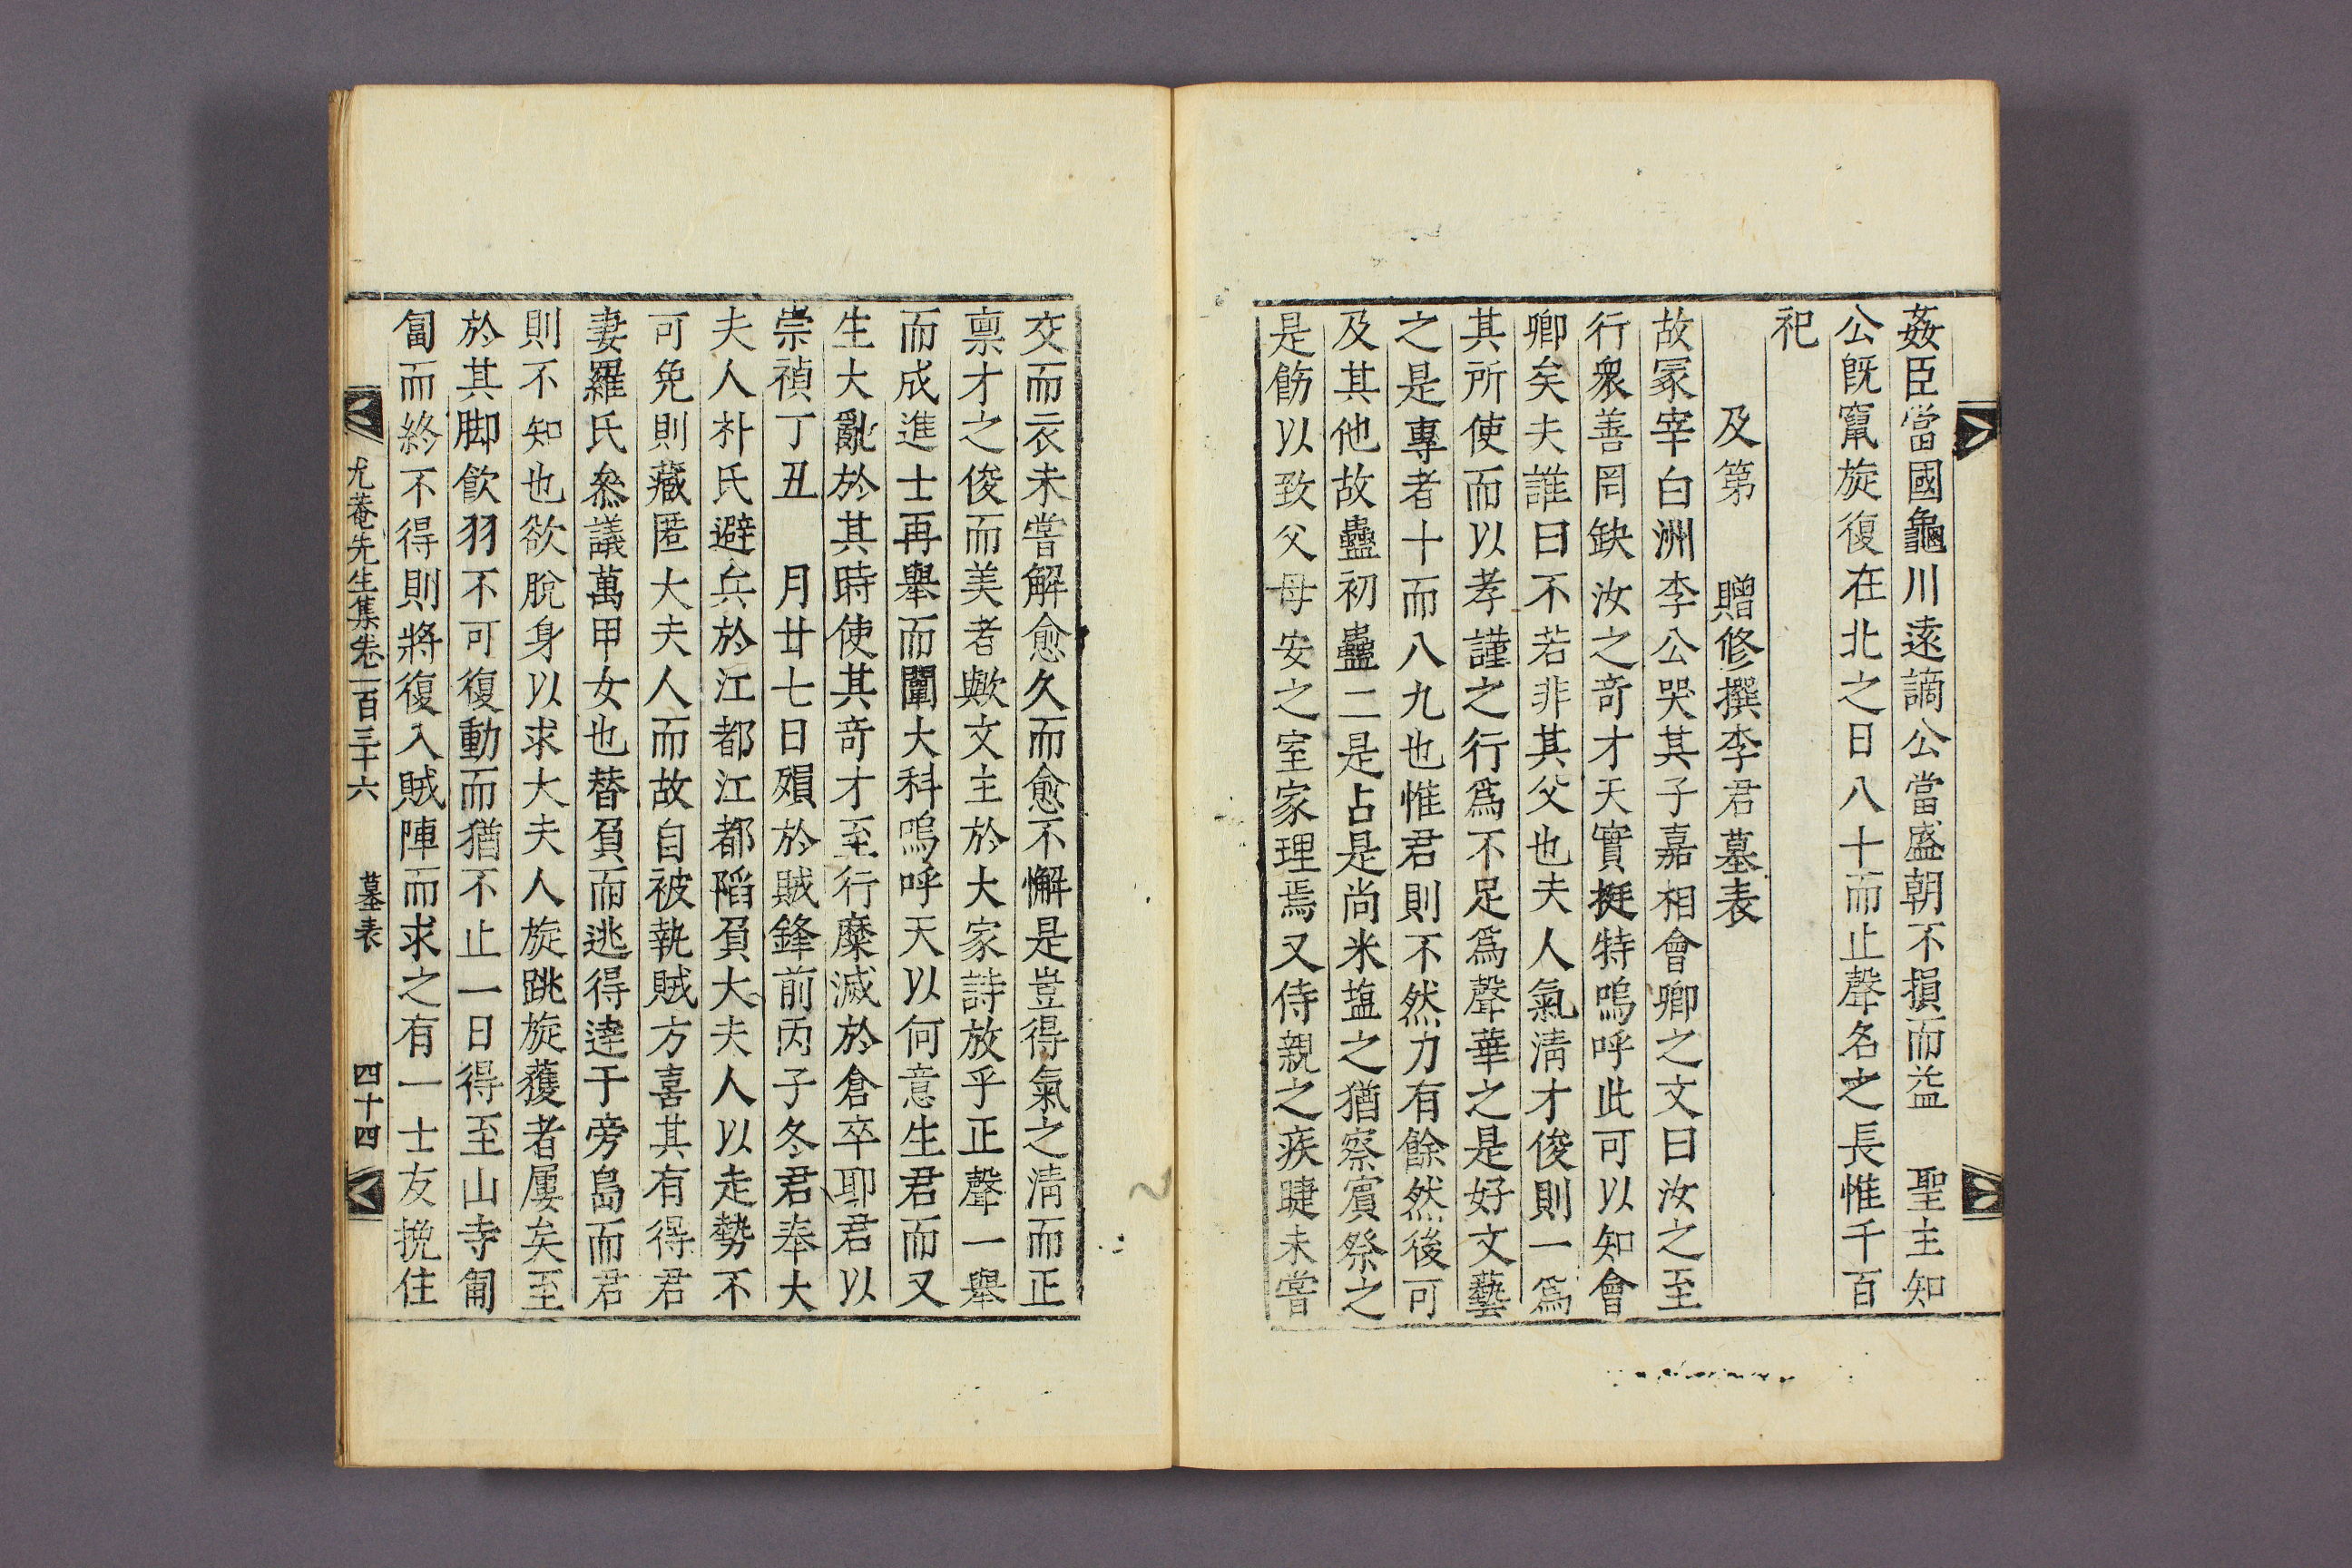 姦臣當國龜川遠謫公當盛朝不損而益 聖主知
公旣竄旋復在北之日八十而止聲名之長惟千百
祀
及第 贈修撰李君墓表
故冢宰白洲李公哭其子嘉相會卿之文曰汝之至
行衆善罔缺汝之奇才天實挺特嗚呼此可以知會
卿矣夫誰曰不若非其父也夫人氣淸才俊則一爲
其所使而以孝謹之行爲不足爲聲華之是好文藝
之是專者十而八九也惟君則不然力有餘然後可
及其他故蠱初蠱二是占是尚米塩之猶察賓祭之
是飭以致父母安之室家理焉又侍親之疾睫未嘗
交而衣未嘗解愈久而愈不懈是豈得氣之淸而正
禀才之俊而美者歟文主於大家詩放乎正聲一擧
而成進士再擧而闡大科嗚呼天以何意生君而又
生大亂於其時使其奇才至行糜滅於倉卒耶君以
崇禎丁丑 月廿七日殞於賊鋒前丙子冬君奉大
夫人朴氏避兵於江都江都陷負大夫人以走勢不
可免則藏匿大夫人而故自被執賊方喜其有得君
妻羅氏叅議萬甲女也替負而逃得達于旁島而君
則不知也欲脫身以求大夫人旋跳旋獲者屢矣至
於其脚飮羽不可復動而猶不止一日得至山寺匍
匐而終不得則將復入賊陣而求之有一士友挽住
尤菴先生集卷一百三十六 墓表 四十四